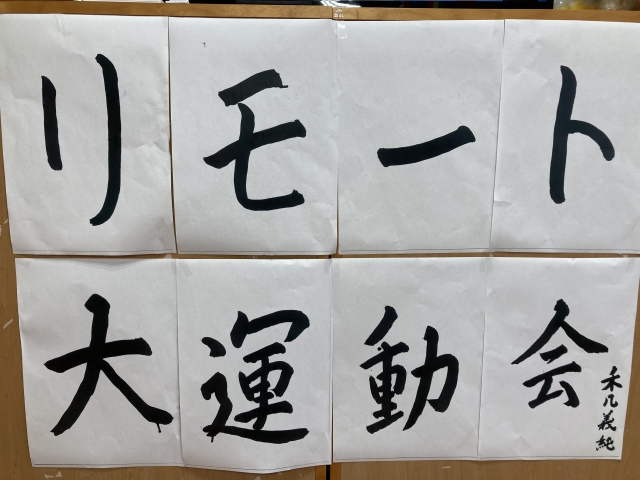 リモート
大運動会
禾几義純